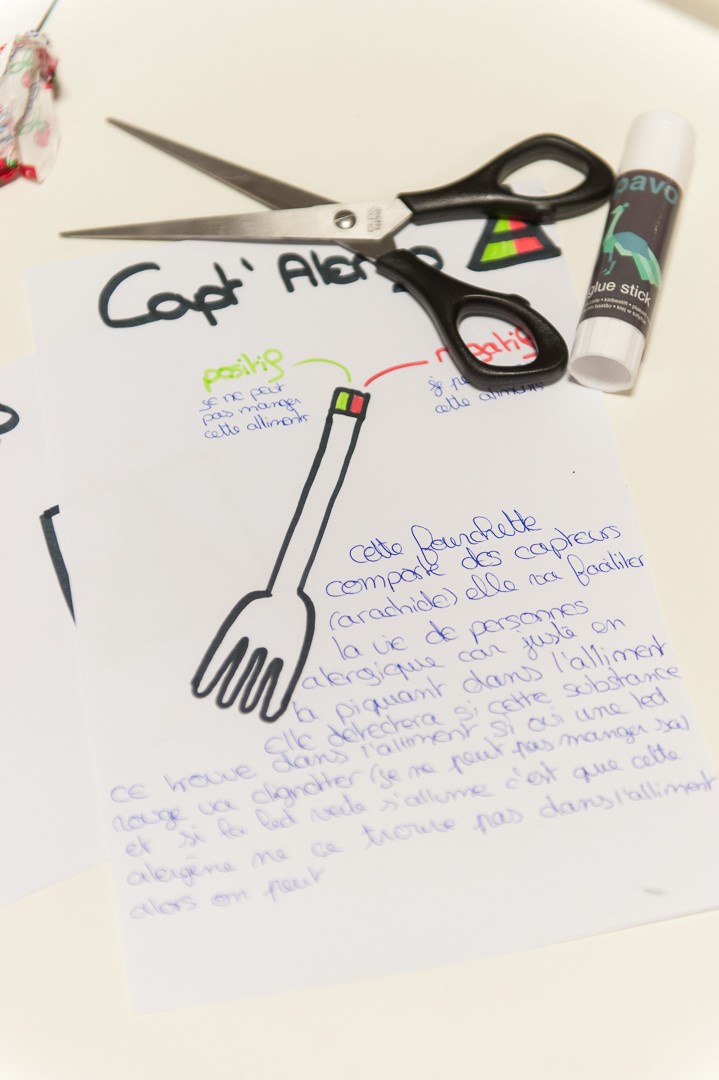 Capt' Aler
positif
negatif
je ne peut
pas manger
cette alliment
je
cette alliment
cette fourchette
composté des capteurs
(arachide) elle va faciliter
la vie de personnes
alergique car juste en
la piquant dans l'alliment
elle détectera si cette substance
ce trouve dans l'alliment si oui une led
rouge va clignotter (je ne peut pas manger sa)
et si la led verte s'allume c'est que cette
alergène ne ce trouve pas dans l'alliment
alors on peut
pavo
glue stick